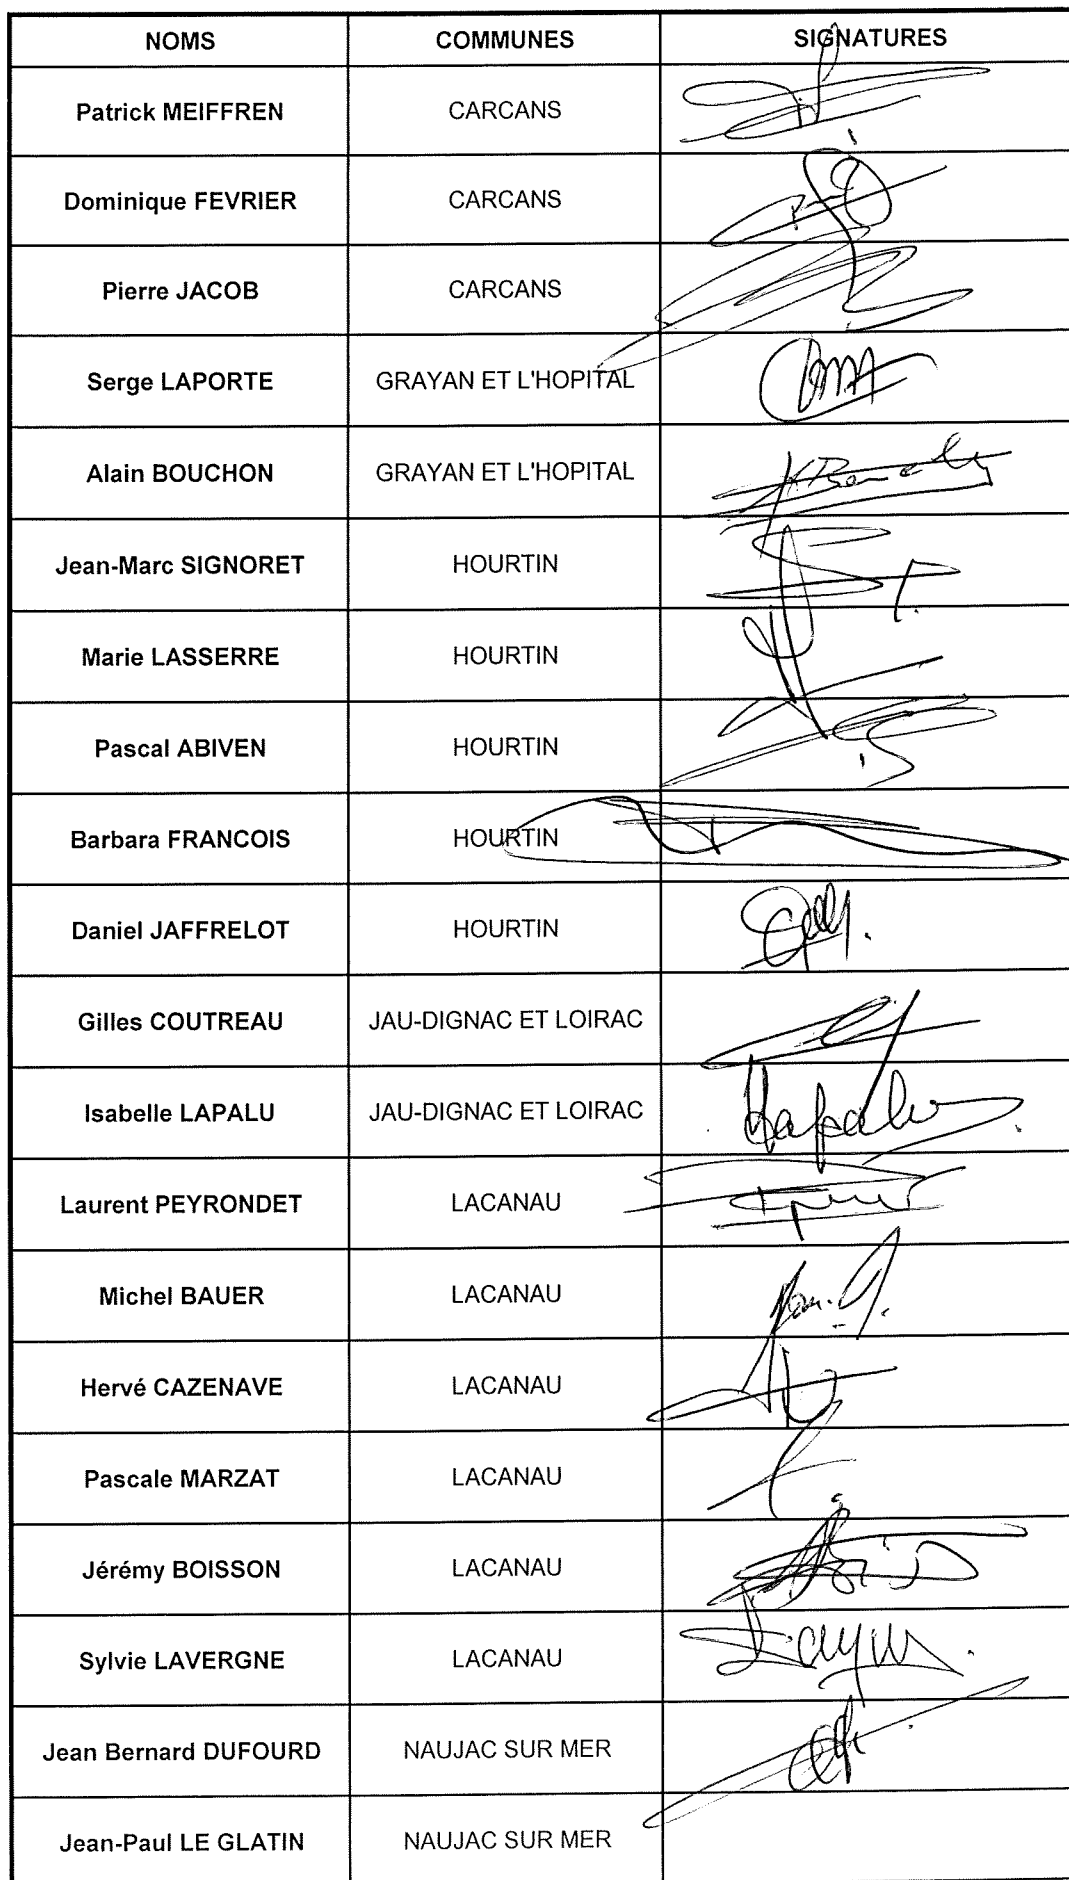 NOMS COMMUNES SIGNATURES
Patrick MEIFFREN CARCANS
Dominique FEVRIER CARCANS
Pierre JACOB CARCANS
Serge LAPORTE GRAYAN ET L'HOPITAL
Alain BOUCHON GRAYAN ET L'HOPITAL
Jean-Marc SIGNORET HOURTIN
Marie LASSERRE HOURTIN
Pascal ABIVEN HOURTIN
Barbara FRANCOIS HOURTIN
Daniel JAFFRELOT HOURTIN
Gilles COUTREAU JAU-DIGNAC ET LOIRAC
Isabelle LAPALU JAU-DIGNAC ET LOIRAC
Laurent PEYRONDET LACANAU
Michel BAUER LACANAU
Hervé CAZENAVE LACANAU
Pascale MARZAT LACANAU
Jérémy BOISSON LACANAU
Sylvie LAVERGNE LACANAU
Jean Bernard DUFOURD NAUJAC SUR MER
Jean-Paul LE GLATIN NAUJAC SUR MER